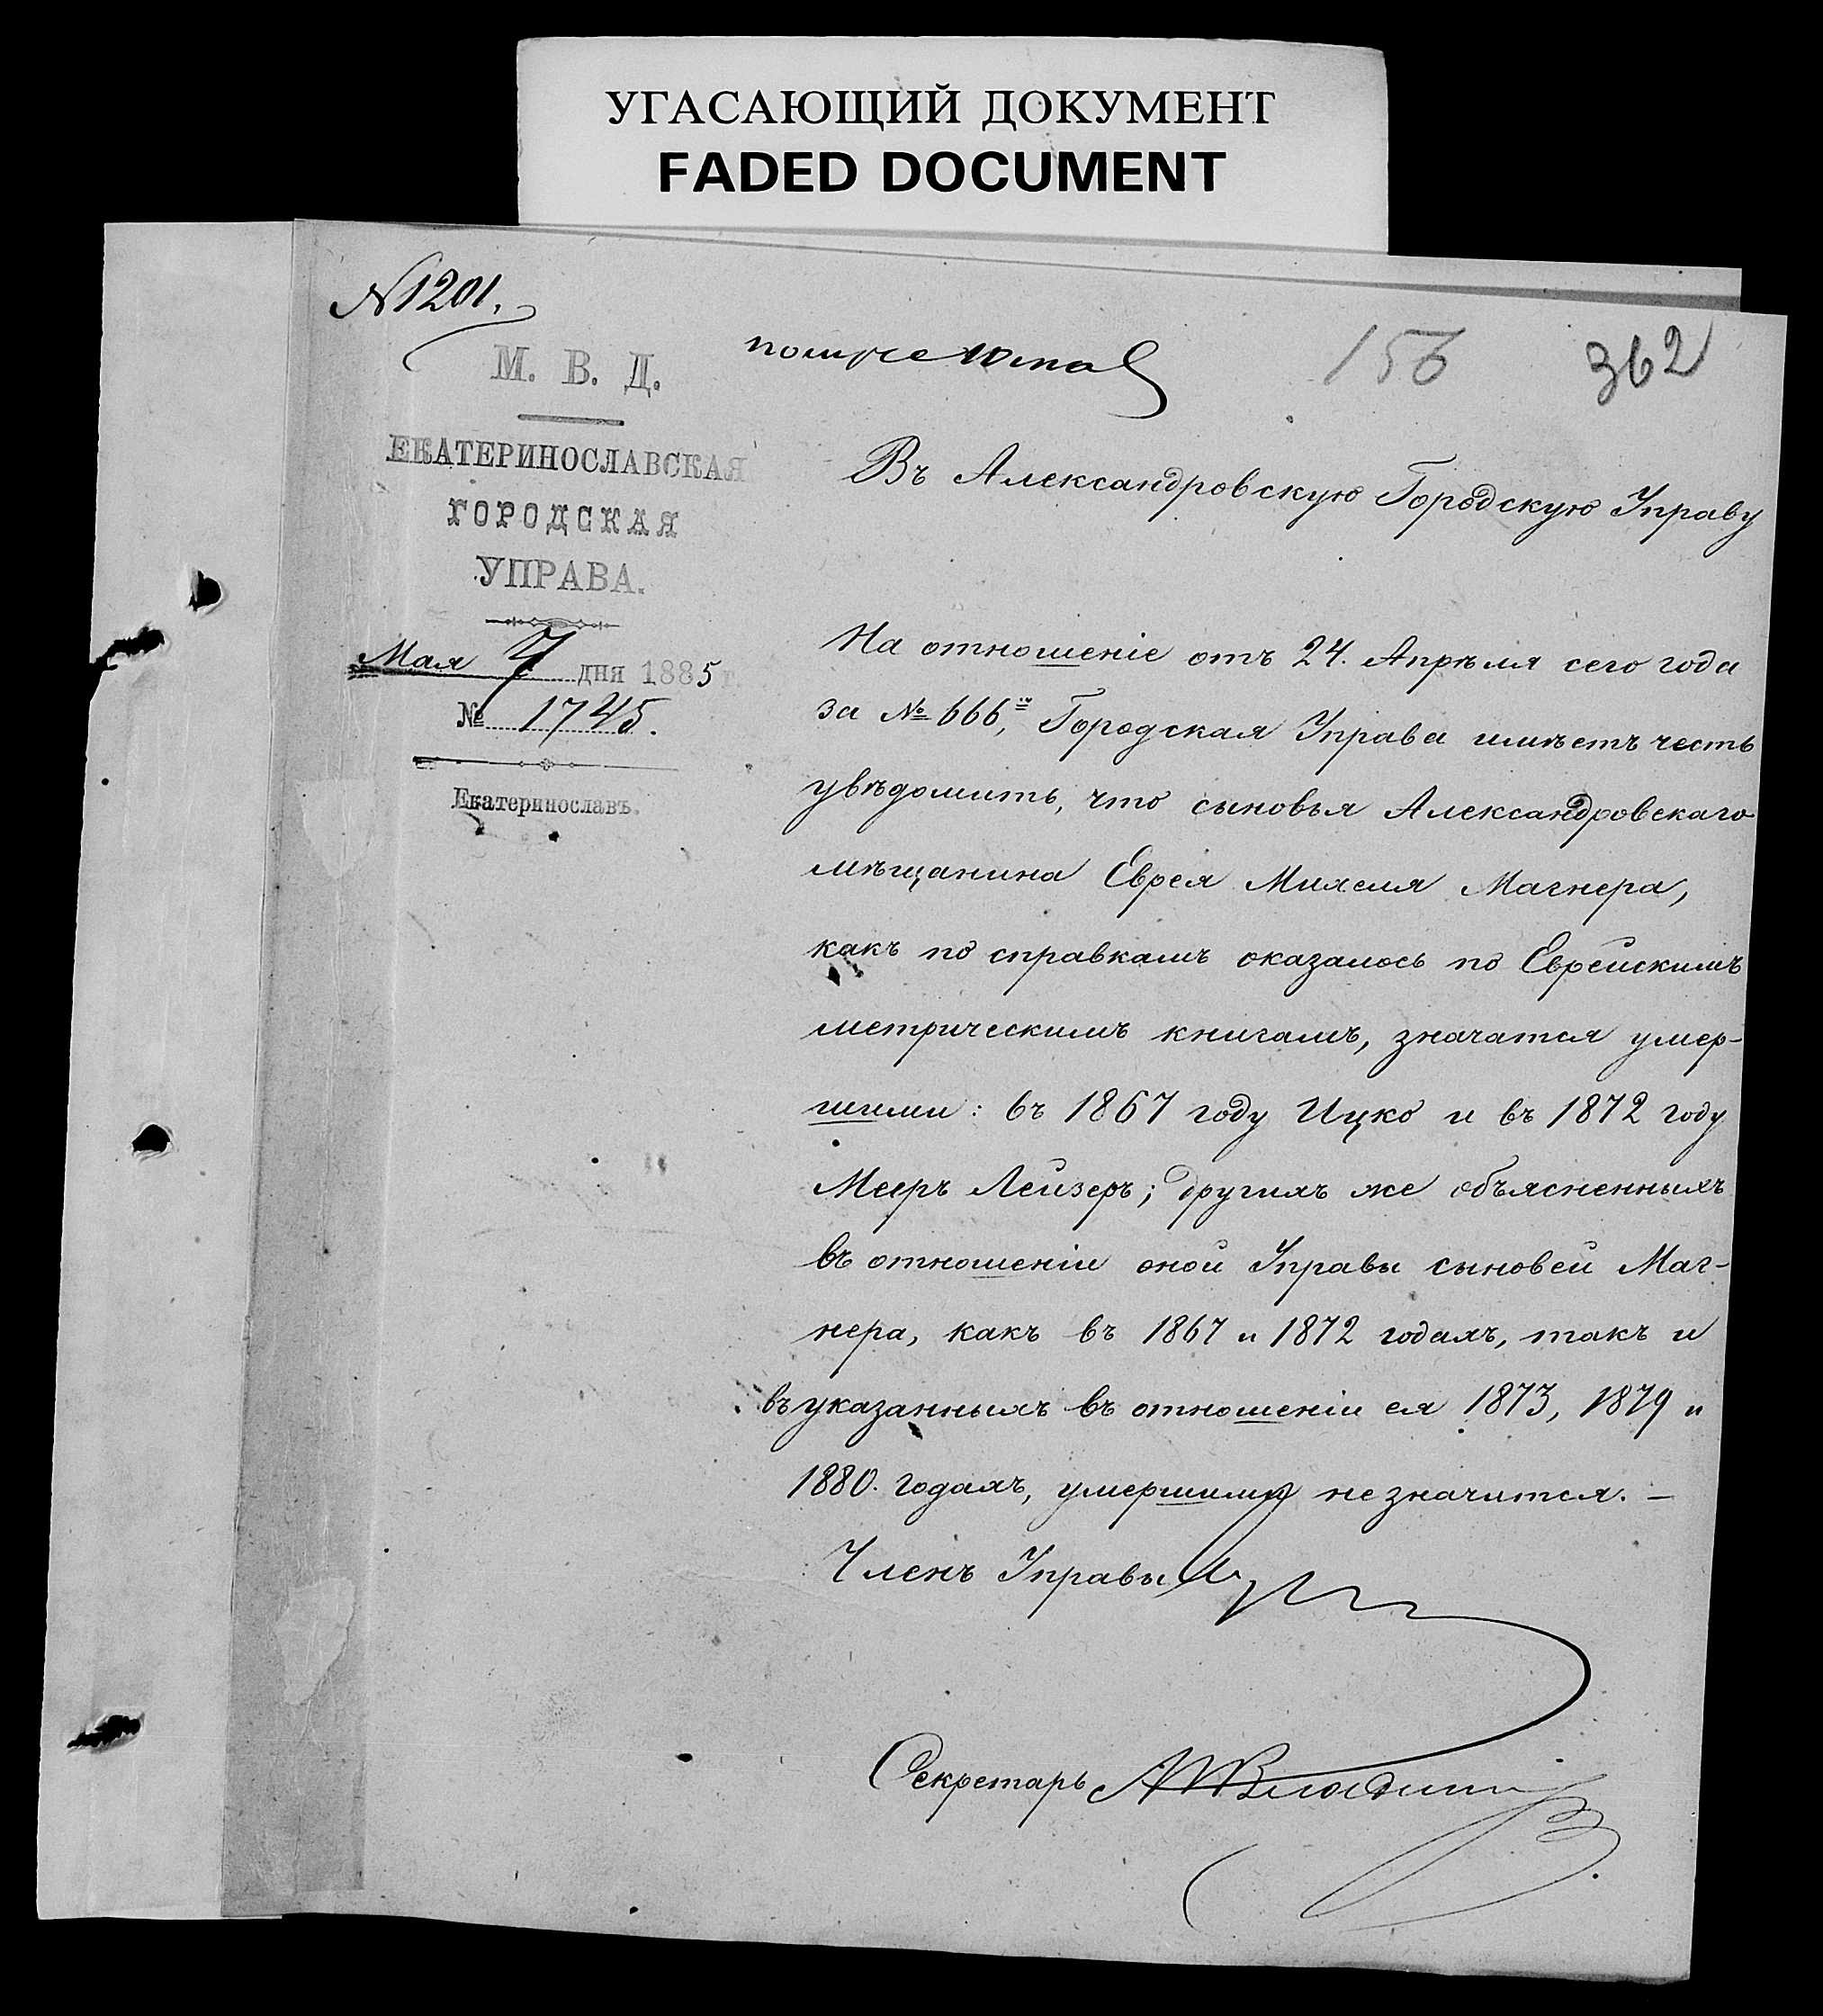 УГАСАЮЩИЙ ДОКУМЕНТ
FADED DOCUMENT
№1201.
156
362
М. В. Д.
ЕКАТЕРИНОСЛАВСКАЯ
ГОРОДСКАЯ
УПРАВА.
Мая 7 дня 1885 г.
№ 1745.
Екатеринославъ.
Въ Александровскую Городскую Управу
На отношеніе отъ 24. Апрѣля сего года
за № 666, Городская Управа имѣетъ честь
увѣдомить, что сыновья Александровскаго
мѣщанина Еврея Михеля Магнера,
какъ по справкамъ оказалось по Еврейскимъ
метрическимъ книгамъ, значатся умер-
шими: въ 1867 году Ицко и въ 1872 году
Мееръ Лейзеръ; другихъ же объясненныхъ
въ отношеніи оной Управы сыновей Маг-
нера, какъ въ 1867 и 1872 годахъ, такъ и
въ указанныхъ въ отношеніи ея 1873, 1879 и
1880. годахъ, умершими не значится. —
Членъ Управы
Секретарь